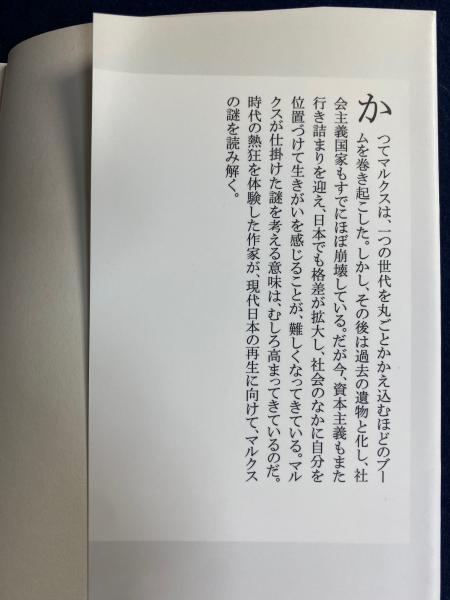 かつてマルクスは、一つの世代を丸ごとかかえ込むほどのブー
ムを巻き起こした。しかし、その後は過去の遺物と化し、社
会主義国家もすでにほぼ崩壊している。だが今、資本主義もまた
行き詰まりを迎え、日本でも格差が拡大し、社会のなかに自分を
位置づけて生きがいを感じることが、難しくなってきている。マル
クスが仕掛けた謎を考える意味は、むしろ高まってきているのだ。
時代の熱狂を体験した作家が、現代日本の再生に向けて、マルクス
の謎を読み解く。